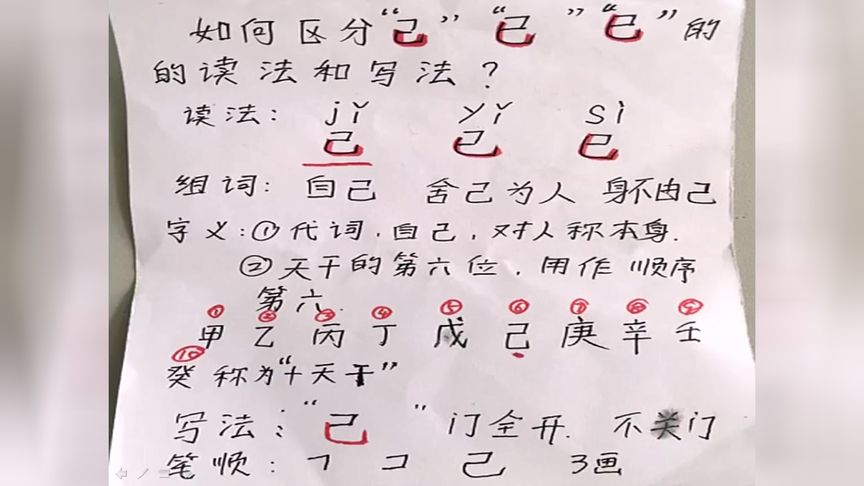 如何区分“己”“已”“巳”的
的读法和写法？
读法： jǐ yǐ sì
己 已 巳
组词： 自己 舍己为人 身不由己
字义：①代词，自己，对人称本身．
②天干的第六位，用作顺序
第六．
① ② ③ ④ ⑤ ⑥ ⑦ ⑧ ⑨
甲 乙 丙 丁 戊 己 庚 辛 壬
⑩
癸 称为“十天干”
写法：“己”门全开．不关门
笔顺：㇕ コ 己 3画